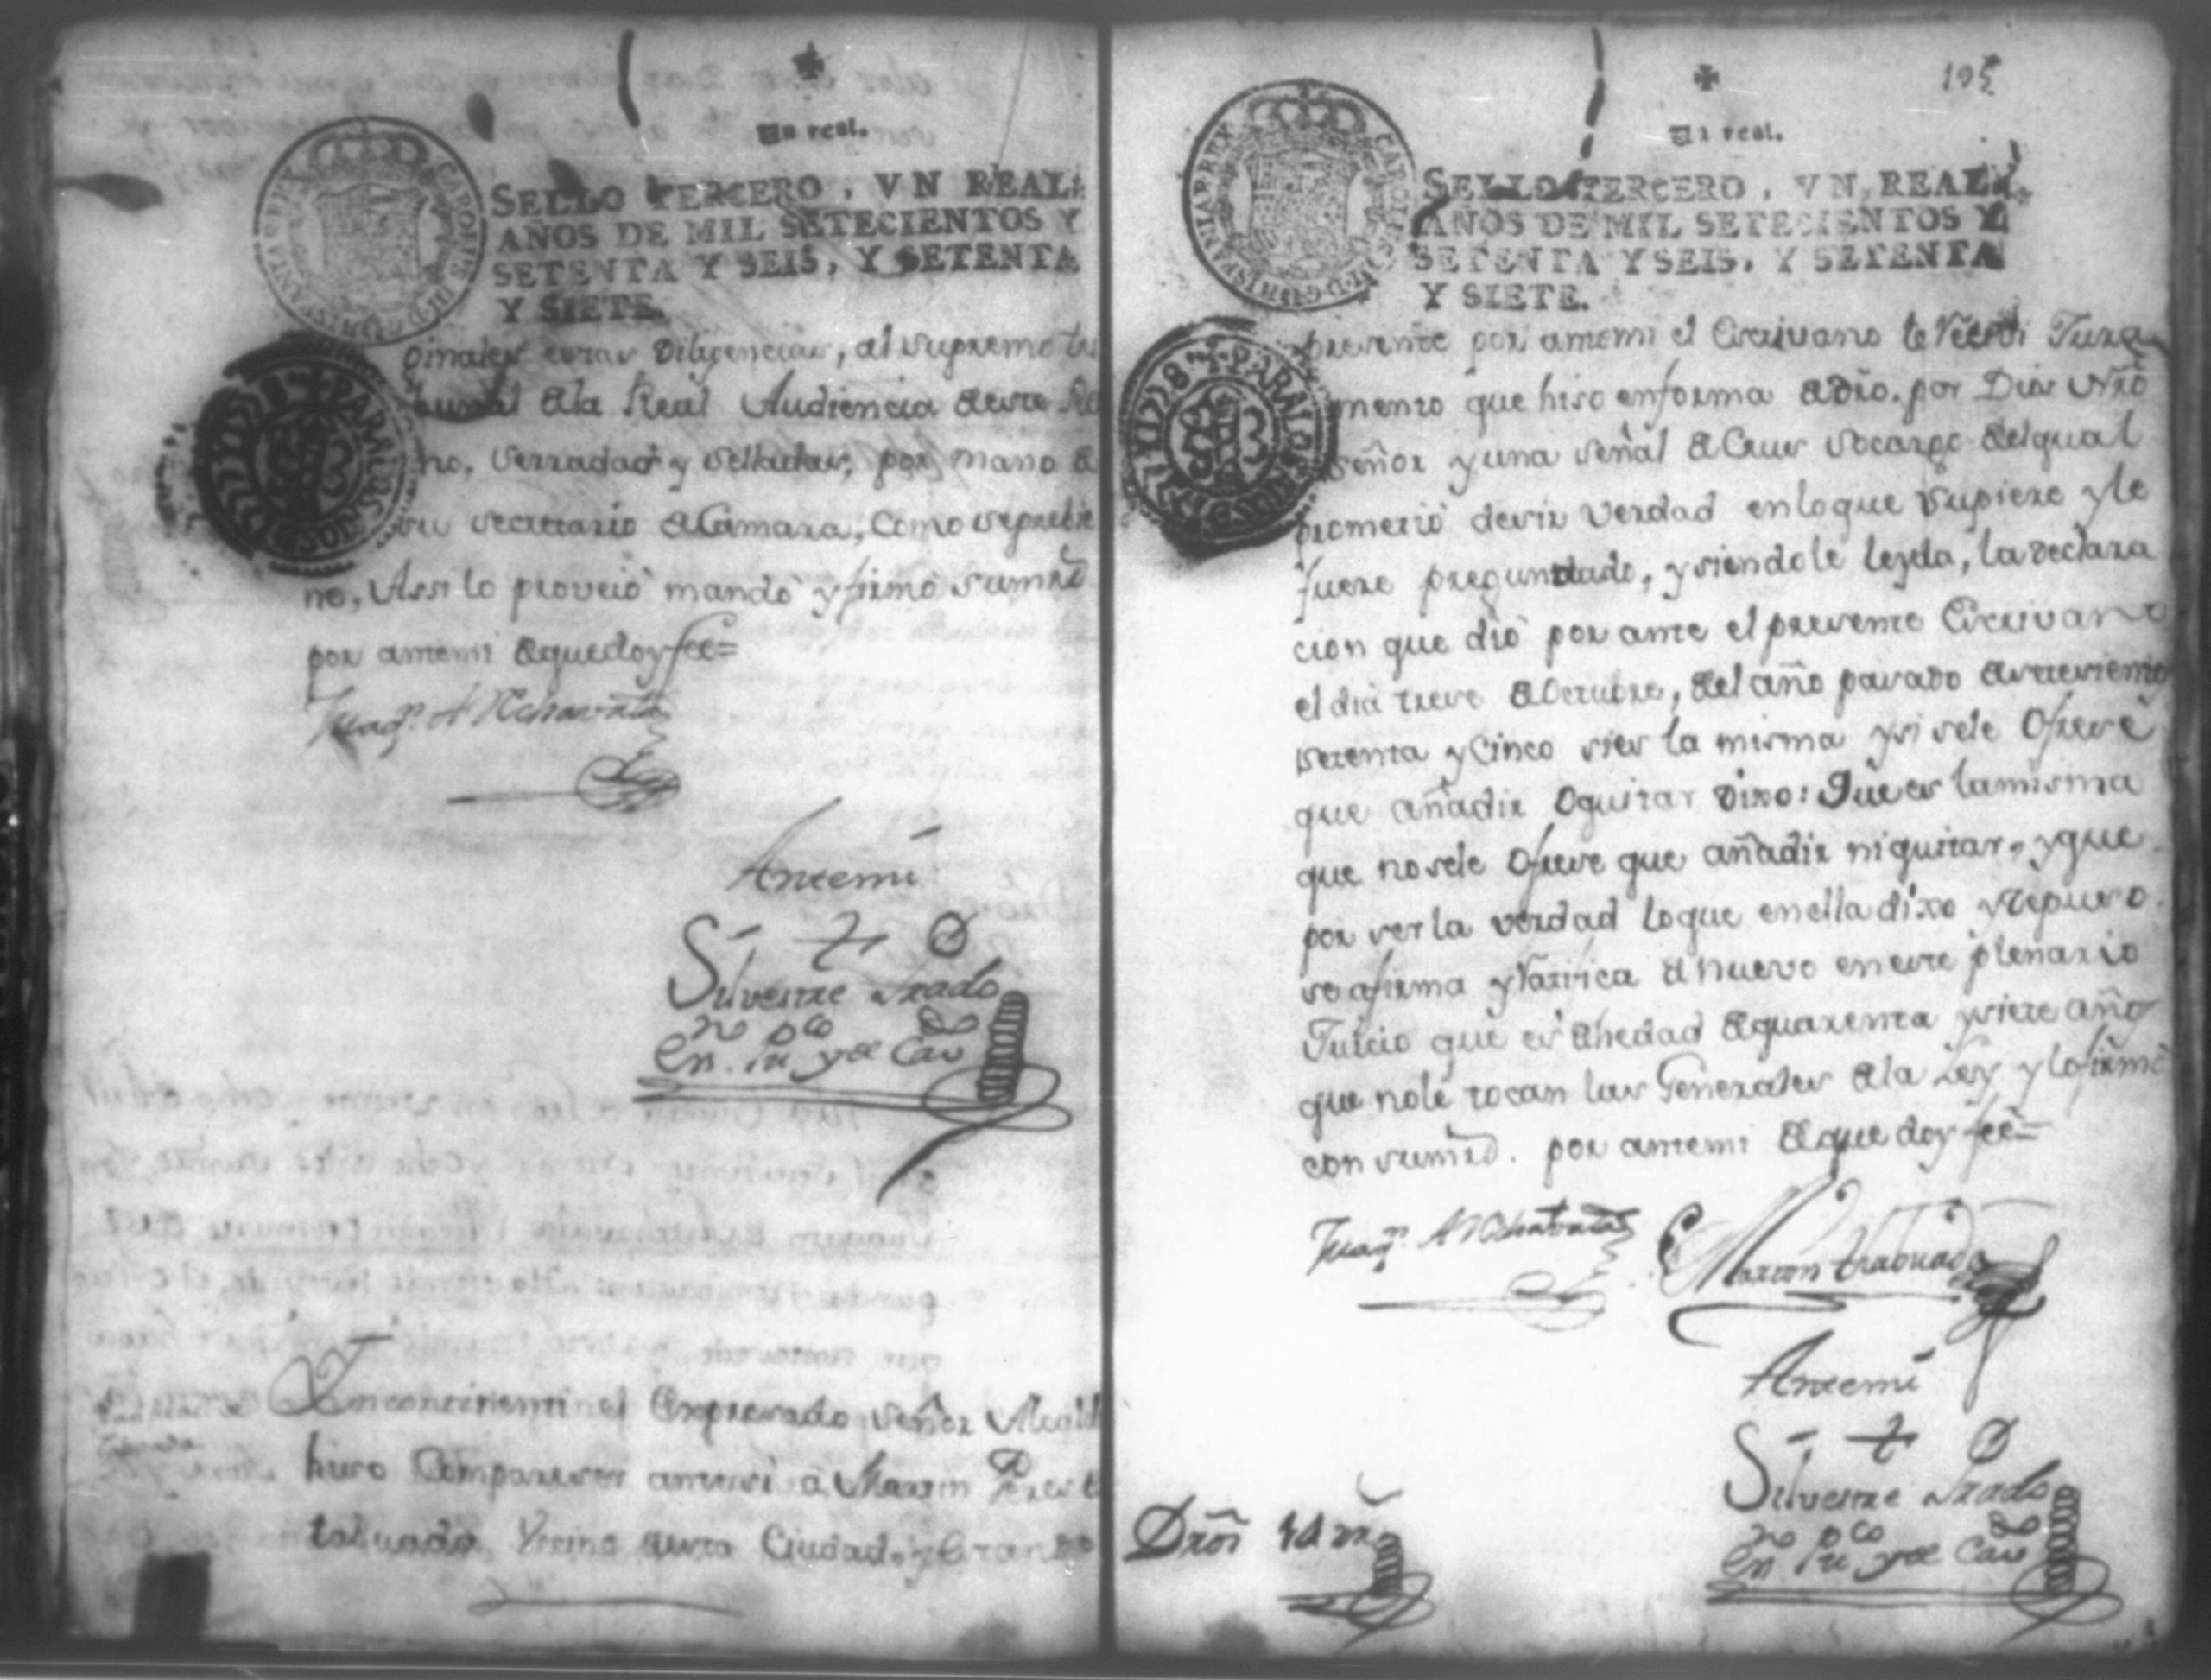 Un real.
SELLO TERCERO, VN REAL:
AÑOS DE MIL SETECIENTOS Y
SETENTA Y SEIS, Y SETENTA
Y SIETE.
ginales estas Diligencias, al supremo tri
bunal dela Real Audiencia deste Re
no, serradas y selladas, por mano de
su secretario de Camara, como seprebie
ne, Assi lo proveió mandó y firmó sumrd
por antemi dequedoy fee=
Antemi
Silvestre Prado
En.no pu.co y de Cav.do
Yncontinenti el Expresado señor Alcald
hiso Compareser antesi â Martin Peres
tabuada Vecino desta Ciudad, y estando
195
Un real.
SELLO TERCERO, VN REAL
AÑOS DE MIL SETECIENTOS Y
SETENTA Y SEIS, Y SETENTA
Y SIETE.
CAROLUS III D.G. HISPANIAR REX
presente por antemi el Escrivano le Resevi Jura
mento que hiso enforma dedro. por Dios Nrõ
señor y una señal de Crus socargo delqual
prometió desir verdad enloque supiere y le
fuere preguntado, y siendole leyda, la declara
cion que dió por ante el presente Escrivano
el dia trese de Octubre, del año pasado de setesientos
setenta y Cinco sies la misma y si sele Ofrese
que añadir O quitar Dixo: Que es lamisma
que nosele Ofrese que añadir ni quitar, y que
por ser la verdad loque enella dixo y repuso
se afirma y Ratifica de nuevo eneste plenario
Juicio que es de hedad de quarenta y siete años
que nole tocan las Generales dela Ley y lofirmó
con sumrd. por antemi de que doy fee=
Martin Tabuada
Antemi
Silvestre Prado
En.no pu.co y de Cav.do